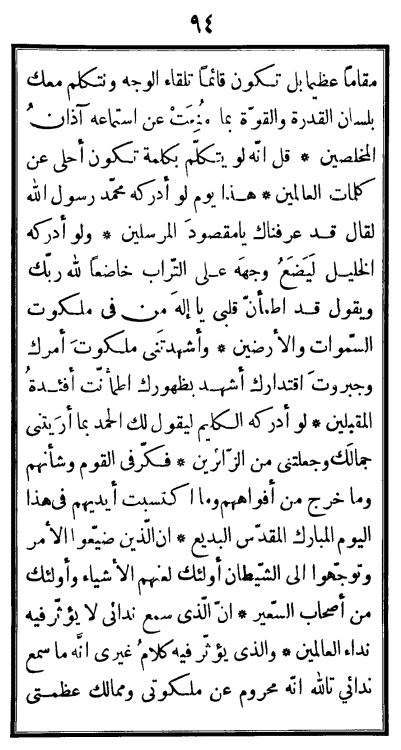 ٩٤
مقامًا عظيما بل تكون قائمًا تلقاء الوجه ونتكلم معك
بلسان القدرة والقوّة بما مُنِعَتْ عن استماعه آذانُ
المخلصين * قل انّه لو يتكلّم بكلمة تكون أحلى عن
كلمات العالمين * هذا يوم لو أدركه محمّد رسول الله
لقال قد عرفناك يا مقصودَ المرسلين * ولو أدركه
الخليل لَيَضَعُ وجهَه على التّراب خاضعًا لله ربّك
ويقول قد اطمأنّ قلبى يا إلهَ من فى ملكوت
السّموات والأرضين * وأشهدتَنى ملكوتَ أمرك
وجبروتَ اقتدارك أشهد بظهورك اطمأنّت أفئدةُ
المقبلين * لو أدركه الكليم ليقول لك الحمد بما أريتنى
جمالَك وجعلتنى من الزّائرين * فكّر فى القوم وشأنهم
وما خرج من أفواههم وما اكتسبت أيديهم فى هذا
اليوم المبارك المقدّس البديع * ان الّذين ضيّعوا الأمر
وتوجّهوا الى الشّيطان أولئك لعنهم الأشياء وأولئك
من أصحاب السّعير * انّ الّذى سمع ندائى لا يؤثّر فيه
نداء العالمين * والذى يؤثّر فيه كلامُ غيرى انّه ما سمع
ندائي تالله انّه محروم عن ملكوتى وممالك عظمتى